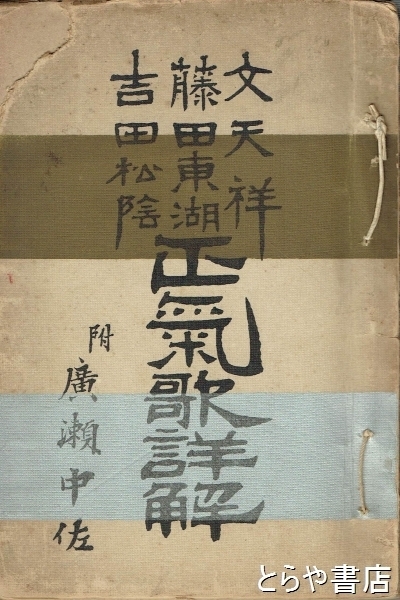 文天祥
藤田東湖
吉田松陰
正氣歌詳解
附 廣瀬中佐
とらや書店